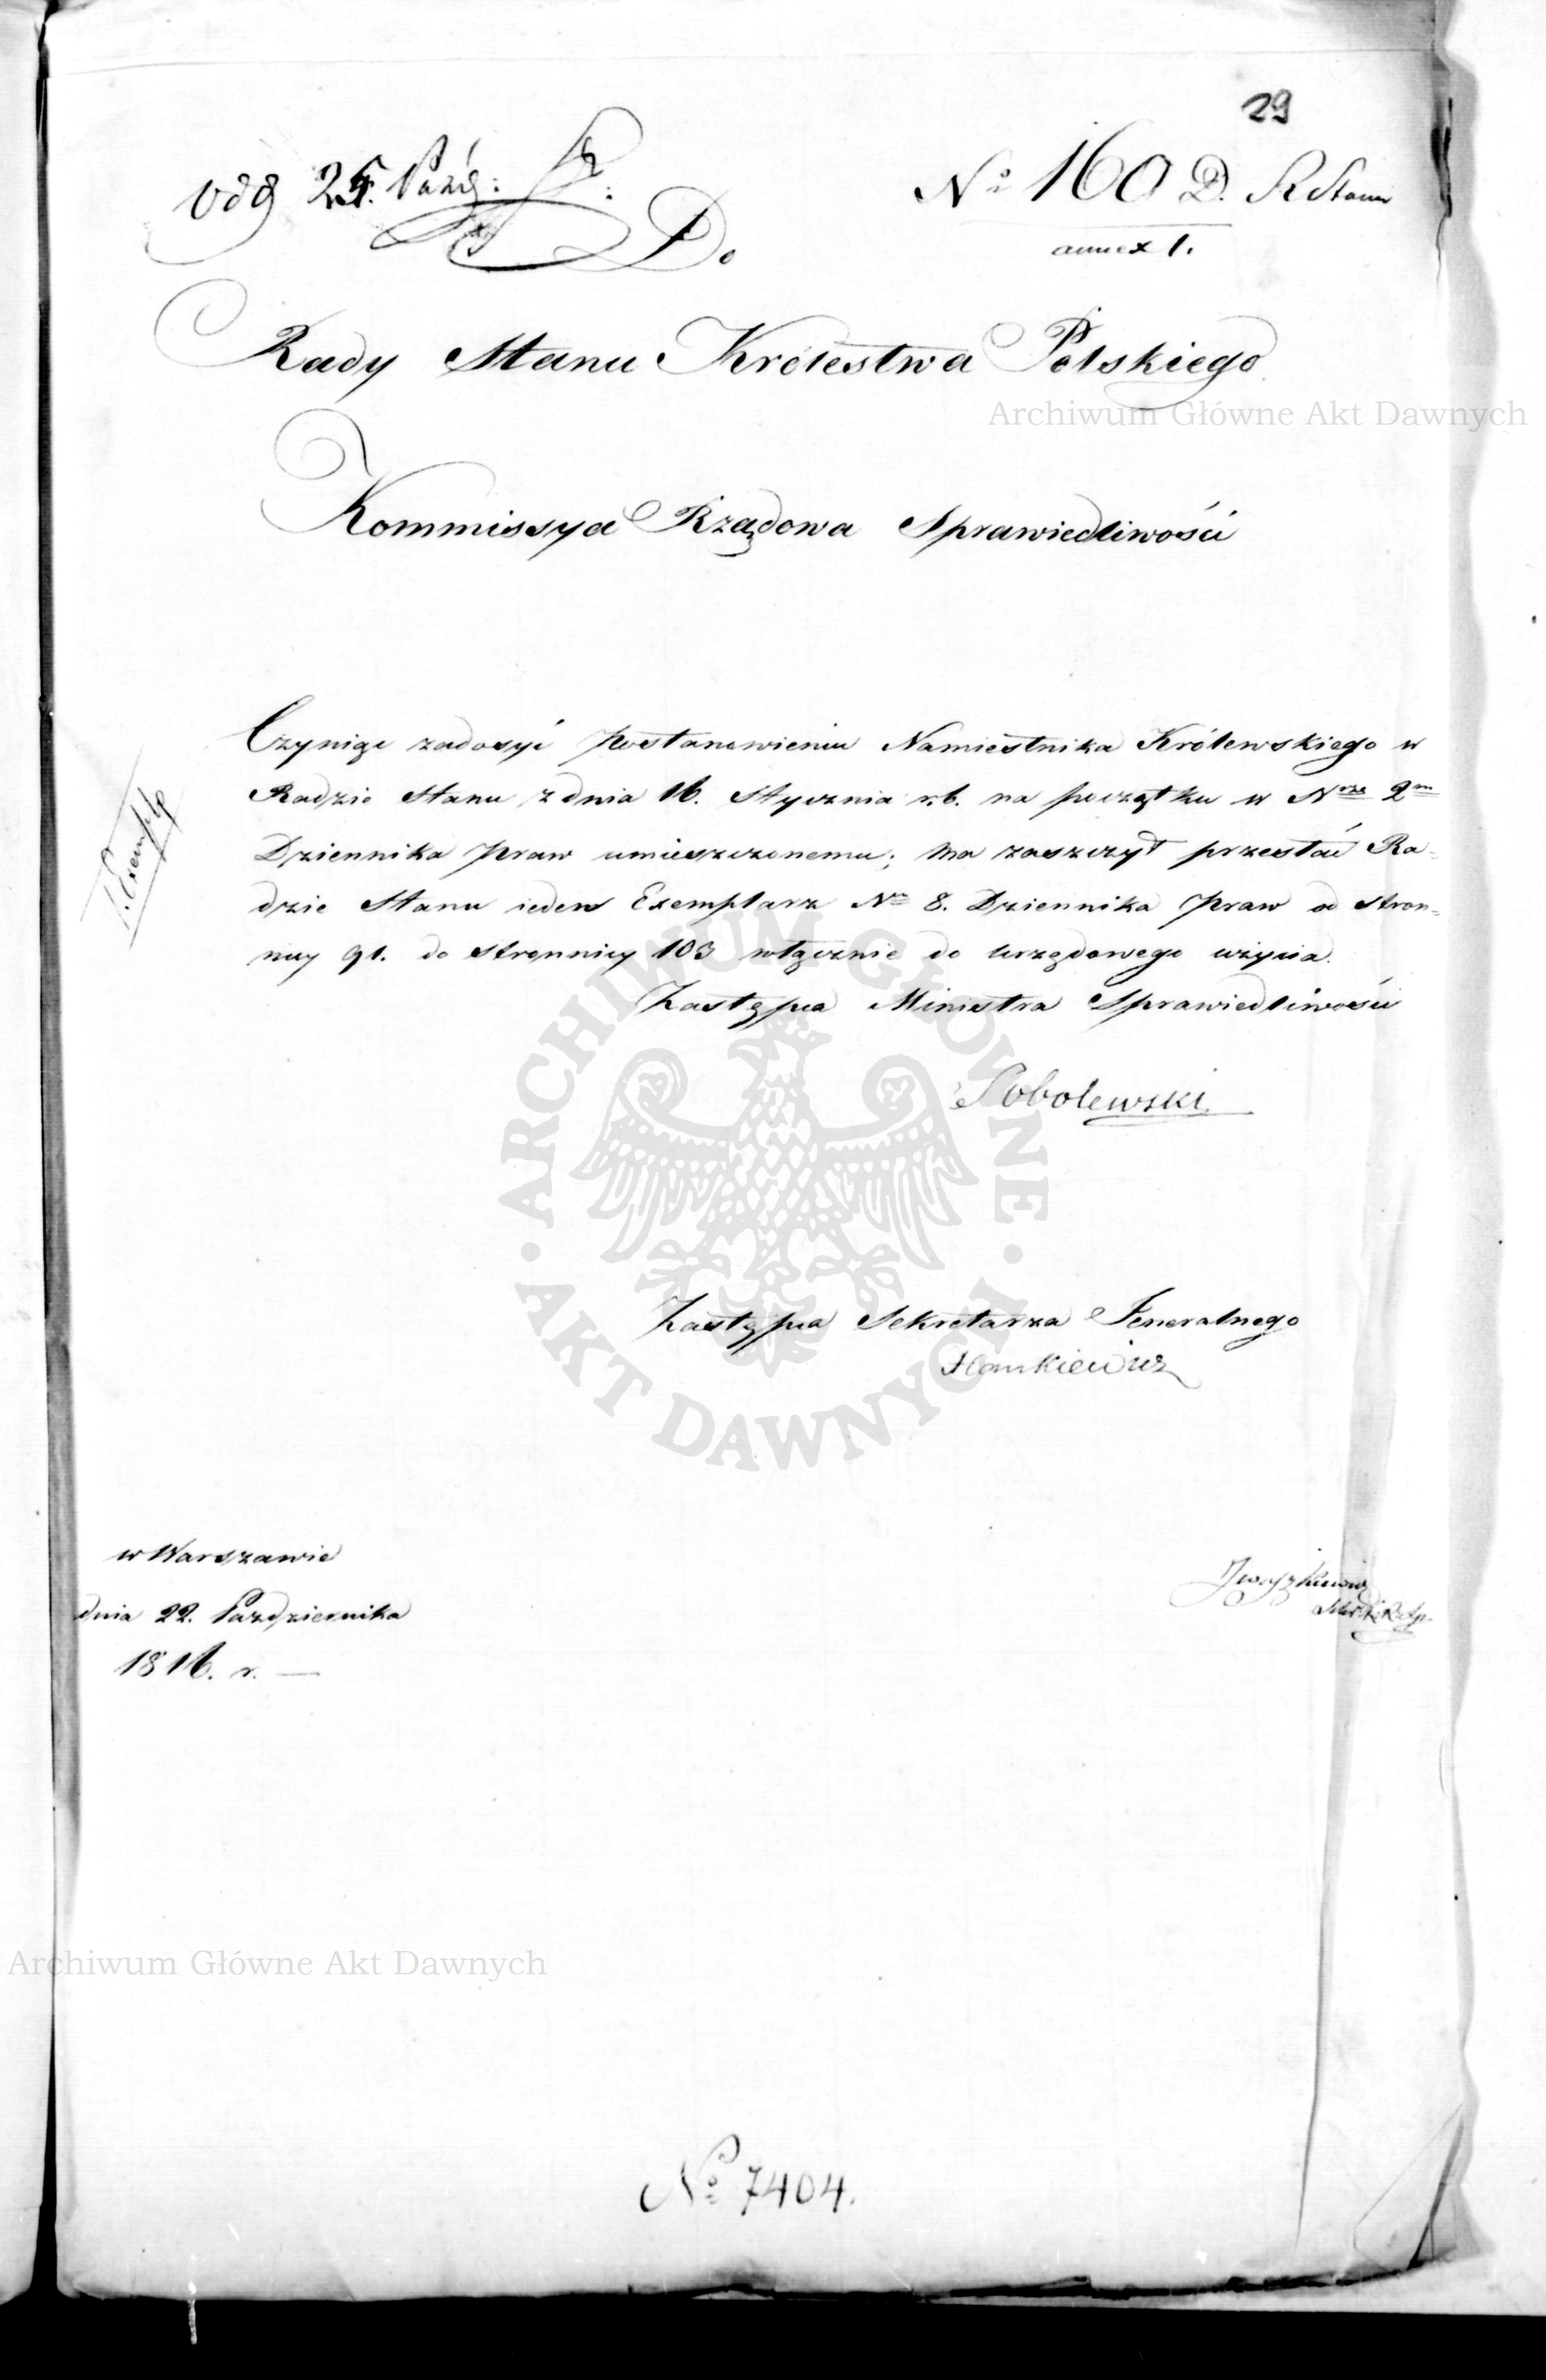 29
odd 25. Paźdz:
No 160 D. R Stanu
annex 1.
Do
Rady Stanu Królestwa Polskiego
Archiwum Główne Akt Dawnych
Kommissya Rządowa Sprawiedliwości
Czyniąc zadosyć postanowieniu Namiestnika Królewskiego w
Radzie Stanu z dnia 16. Stycznia r.b. na początku w Nrze 2m
1. Exempl
Dziennika Praw umieszczonemu; ma zaszczyt przesłać Ra-
dzie Stanu ieden Exemplarz Nru 8. Dziennika Praw od stron-
nicy 91. do stronnicy 103 włącznie do urzędowego użycia.
Zastępca Ministra Sprawiedliwości
Sobolewski
ARCHIWUM GŁÓWNE
AKT DAWNYCH
Zastępca Sekretarza Jeneralnego
Hankiewicz
w Warszawie
dnia 22. Października
1816. r. —
Archiwum Główne Akt Dawnych
No 7404.